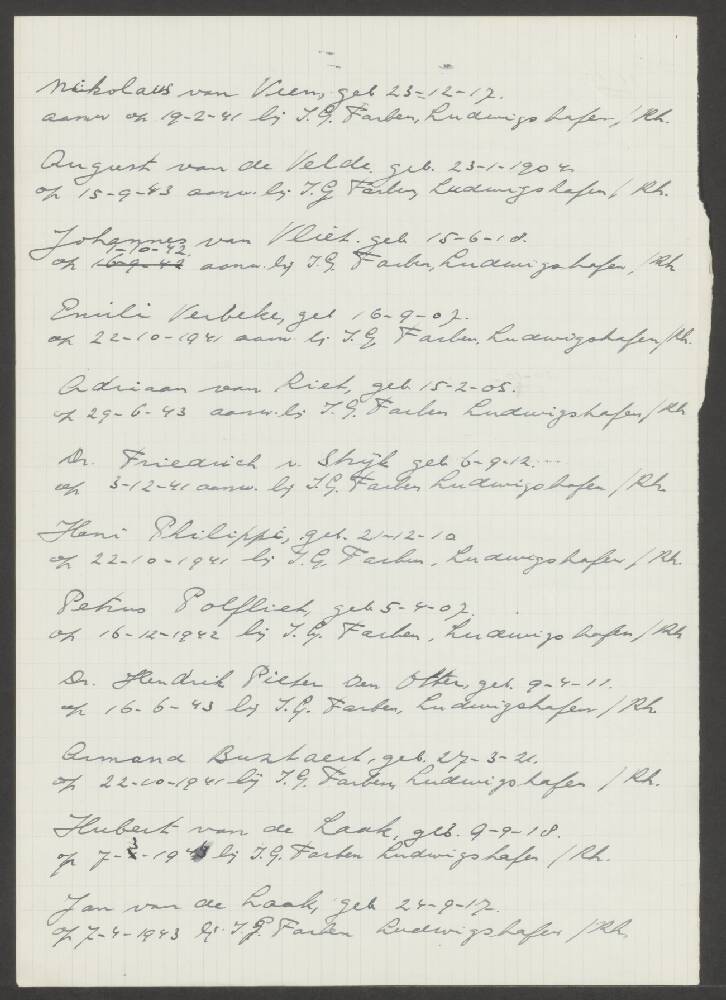 Nikolaus van Veen, geb 23-12-17.
aanw op 19-2-41 bij I.G. Farben, Ludwigshafen / Rh.
August van de Velde. geb. 23-1-1904
op 15-9-43 aanw. bij I.G. Farben, Ludwigshafen / Rh.
Johannes van Vliet. geb 15-6-18.
1-10-42
op 16-9-42 aanw. bij I.G. Farben, Ludwigshafen, / Rh
Emili Verbeke, geb 16-9-07.
op 22-10-1941 aanw bij I.G. Farben, Ludwigshafen / Rh.
Adriaan van Riet, geb. 15-2-05.
op 29-6-43 aanw. bij I.G. Farben Ludwigshafen / Rh
Dr. Friedrich v. Strijk geb 6-9-12.
op 3-12-41 aanw. bij I.G. Farben Ludwigshafen / Rh
Heni Philippi, geb. 21-12-10
op 22-10-1941 bij I.G. Farben, Ludwigshafen / Rh.
Petrus Polfliet, geb 5-4-07.
op 16-12-1942 bij I.G. Farben, Ludwigshafen / Rh
Dr. Hendrik Pieter Den Otter, geb. 9-4-11.
op 16-6-43 bij I.G. Farben, Ludwigshafen / Rh.
Armand Bustaert, geb. 27-3-21.
op 22-10-1941 bij I.G. Farben, Ludwigshafen / Rh.
Hubert van de Laak, geb. 9-9-18.
op 7- -19 bij I.G. Farben Ludwigshafen / Rh.
Jan van de Laak, geb 24-9-17.
op 7-4-1943 bij I.G. Farben Ludwigshafen / Rh.